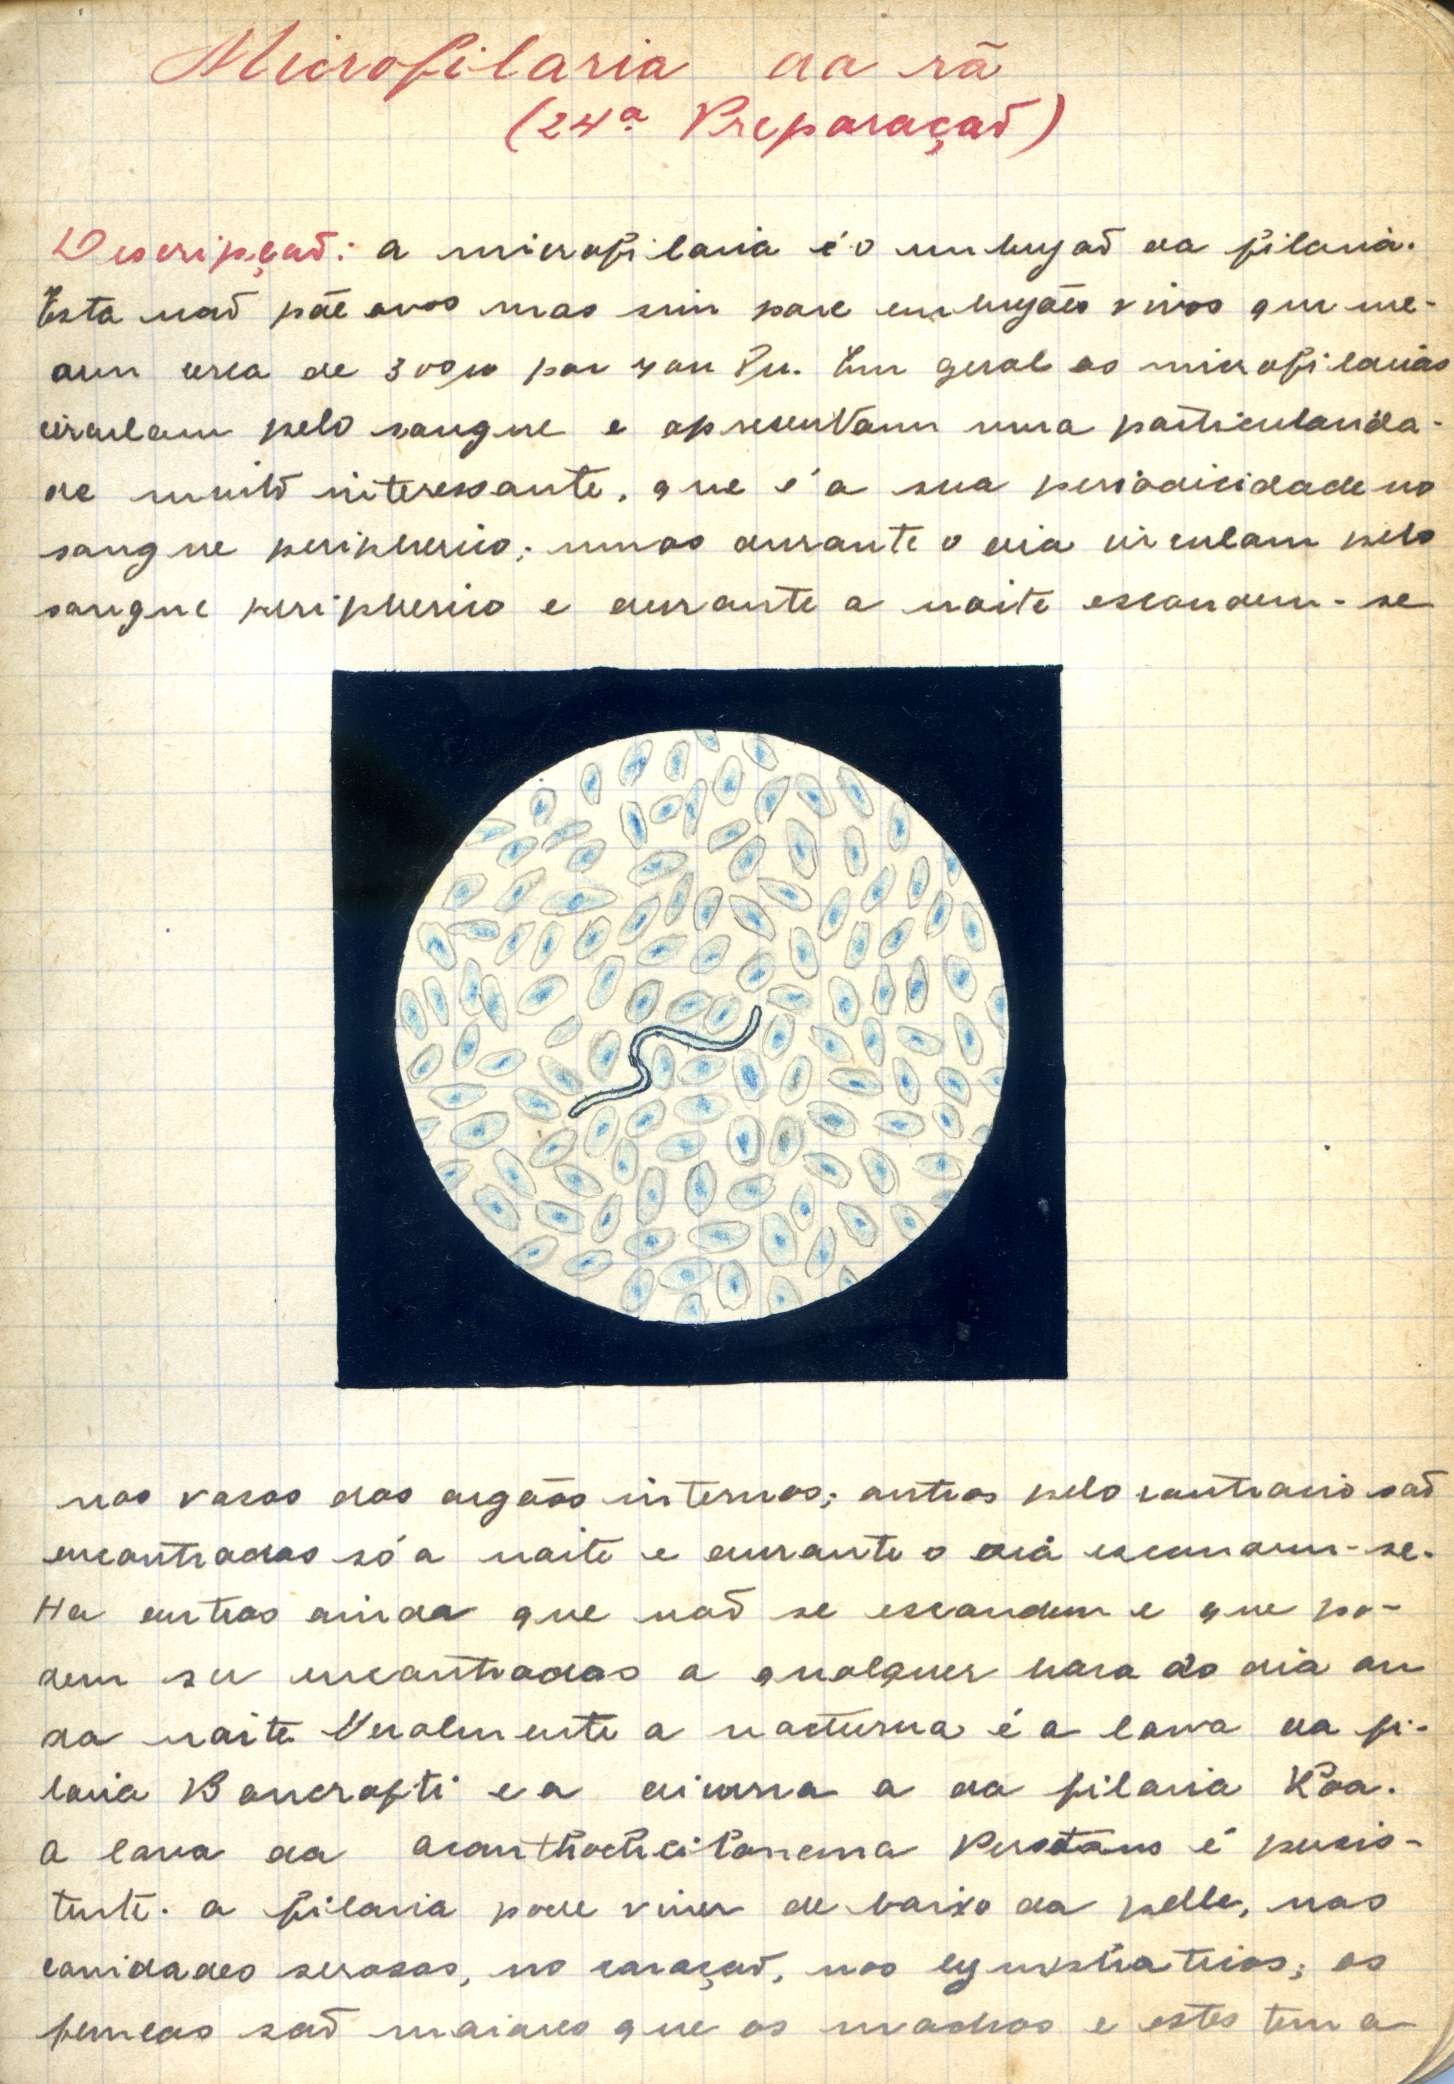 Microfilaria da rã
(24ª Preparação)
Descripção: A microfilaria é o embryão da filaria.
Esta não põe ovos mas sim pare embryões vivos que me-
dem cerca de 300µ por 7 ou 8µ. Em geral as microfilarias
circulam pelo sangue e apresentam uma particularida-
de muito interessante, que é a sua periodicidade no
sangue peripherico; umas durante o dia circulam pelo
sangue peripherico e durante a noite escondem-se
nos vasos dos orgãos internos; outras pelo contrario são
encontradas só a noite e durante o dia escondem-se.
Ha outras ainda que não se escondem e que po-
dem ser encontradas a qualquer hora do dia ou
da noite. Geralmente a nocturna é a larva da fi-
laria Bancrofti e a diurna a da filaria Loa.
A larva da Acanthocheilonema Perstans é persis-
tente. A filaria pode viver de baixo da pelle, nas
cavidades serosas, no coração, nos lymphaticos; as
femeas são maiores que os machos e estes tem a